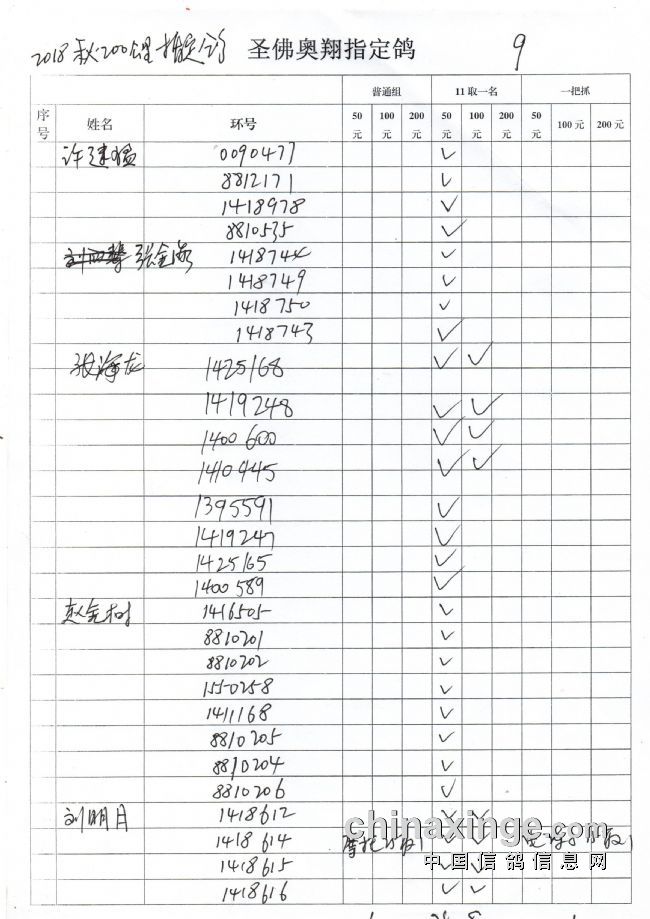 2018秋200公里指定 圣佛奥翔指定鸽 9
普通组 11取一名 一把抓
序号 姓名 环号 50元 100元 200元 50元 100元 200元 50元 100元 200元
许建 0090477 ✓
8812171 ✓
1418978 ✓
8810535 ✓
张金 1418744 ✓
1418749 ✓
1418750 ✓
1418743 ✓
张海龙 1425168 ✓ ✓
1419248 ✓ ✓
1400600 ✓ ✓
1410445 ✓ ✓
1395591 ✓
1419247 ✓
1425165 ✓
1400589 ✓
赵金树 1416505 ✓
8810201 ✓
8810202 ✓
1550258 ✓
1411168 ✓
8810205 ✓
8810204 ✓
8810206 ✓
刘明月 1418612 ✓ ✓
chinaxinge.com
1418614 摩托 ✓ ✓
中国信鸽信息网
1418615 ✓ ✓
1418616 ✓ ✓